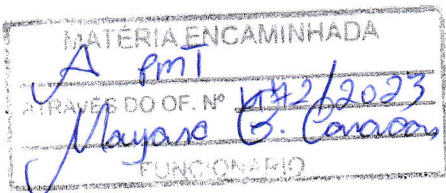 MATÉRIA ENCAMINHADA
A PMT
ATRAVÉS DO OF. Nº /2023
Mayara G.
FUNCIONÁRIO